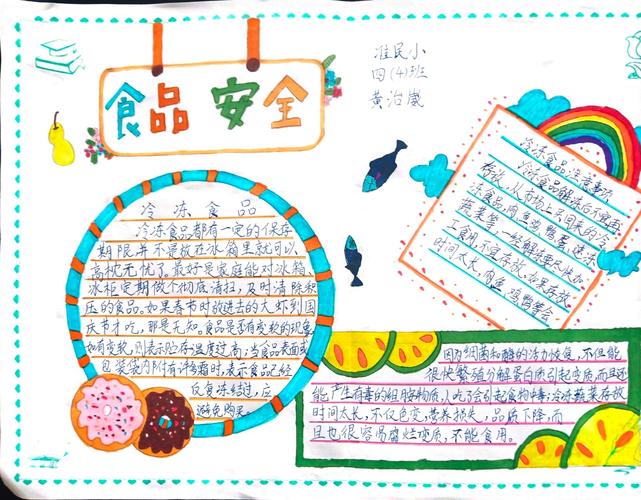 食品安全
淮民小
四(4)班
黄治崴
冷冻食品
冷冻食品都有一定的保存
期限并不是放在冰箱里就可以
高枕无忧了。最好是家庭能对冰箱、
冰柜定期做个彻底清扫,及时清除积
压的食品。如果春节时放进去的大虾到国
庆节才吃,那是无知。食品是否有变软的现象,
如有变软,则表示贮存温度过高;当食品表面或
包装袋内附有冰霜时,表示食品已经
反复冻结过,应
避免购买。
冷冻食品注意事项
冷冻食品解冻后不宜再
存放,从市场上买回来的冷
冻食品,肉鱼鸡鸭蛋、速冻
蔬菜等,一经解冻要尽快加
上食用,不宜存放,如果存放
时间太长,肉鱼,鸡鸭等会
因为细菌和酶的活力恢复,不但能
很快繁殖分解蛋白质引起变质,而且还
能产生有毒的组胺物质,人吃了会引起食物中毒;冷冻蔬菜存放
时间太长,不仅色变,营养损失,品质下降,而
且也很容易腐烂变质,不能食用。